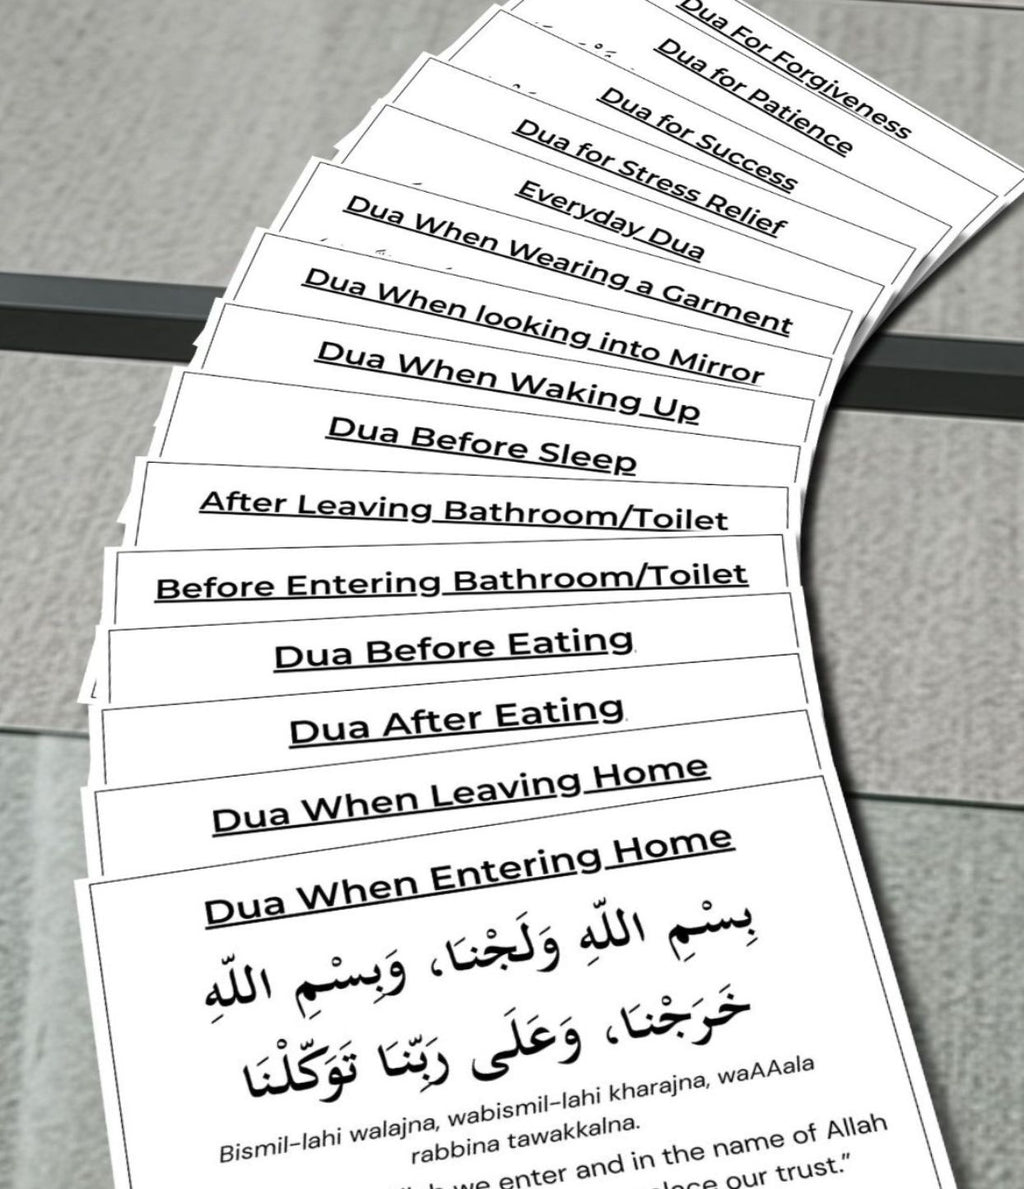 Dua For Forgiveness
Dua for Patience
Dua for Success
Dua for Stress Relief
Everyday Dua
Dua When Wearing a Garment
Dua When looking into Mirror
Dua When Waking Up
Dua Before Sleep
After Leaving Bathroom/Toilet
Before Entering Bathroom/Toilet
Dua Before Eating
Dua After Eating
Dua When Leaving Home
Dua When Entering Home
بِسْمِ اللّهِ وَلَجْنَا، وَبِسْمِ اللّهِ
خَرَجْنَا، وَعَلَى رَبِّنَا تَوَكّلْنَا
Bismil-lahi walajna, wabismil-lahi kharajna, waAAala
rabbina tawakkalna.
we enter and in the name of Allah
place our trust.”